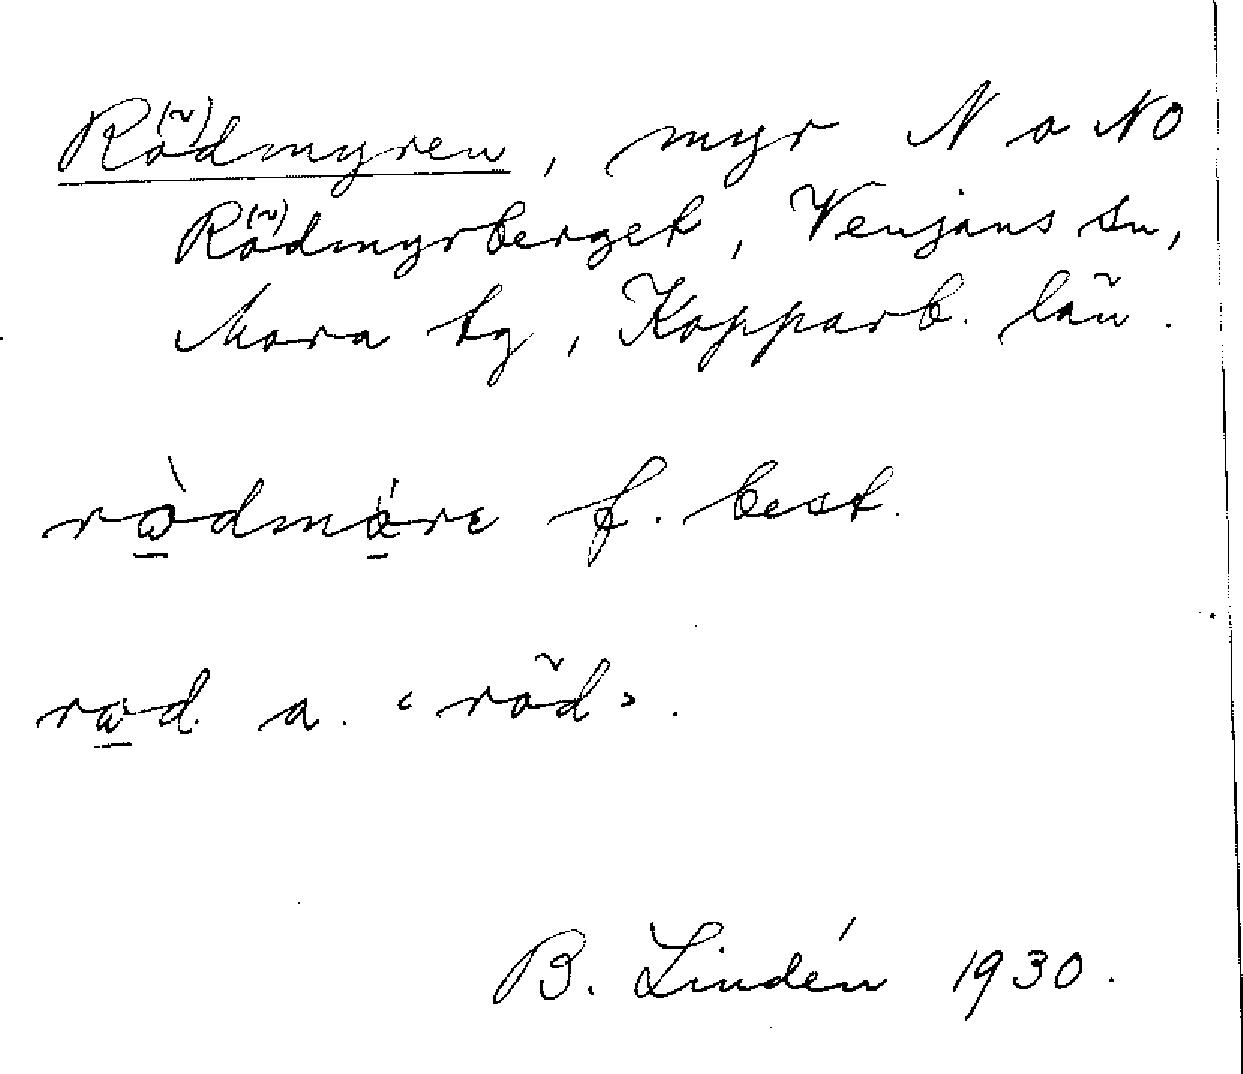 Rödmyren, myr N o NO
Rödmyrberget, Venjans sn,
Mora tg, Kopparb. län.
f. best.
a. ‹röd›.
B. Lindén 1930.